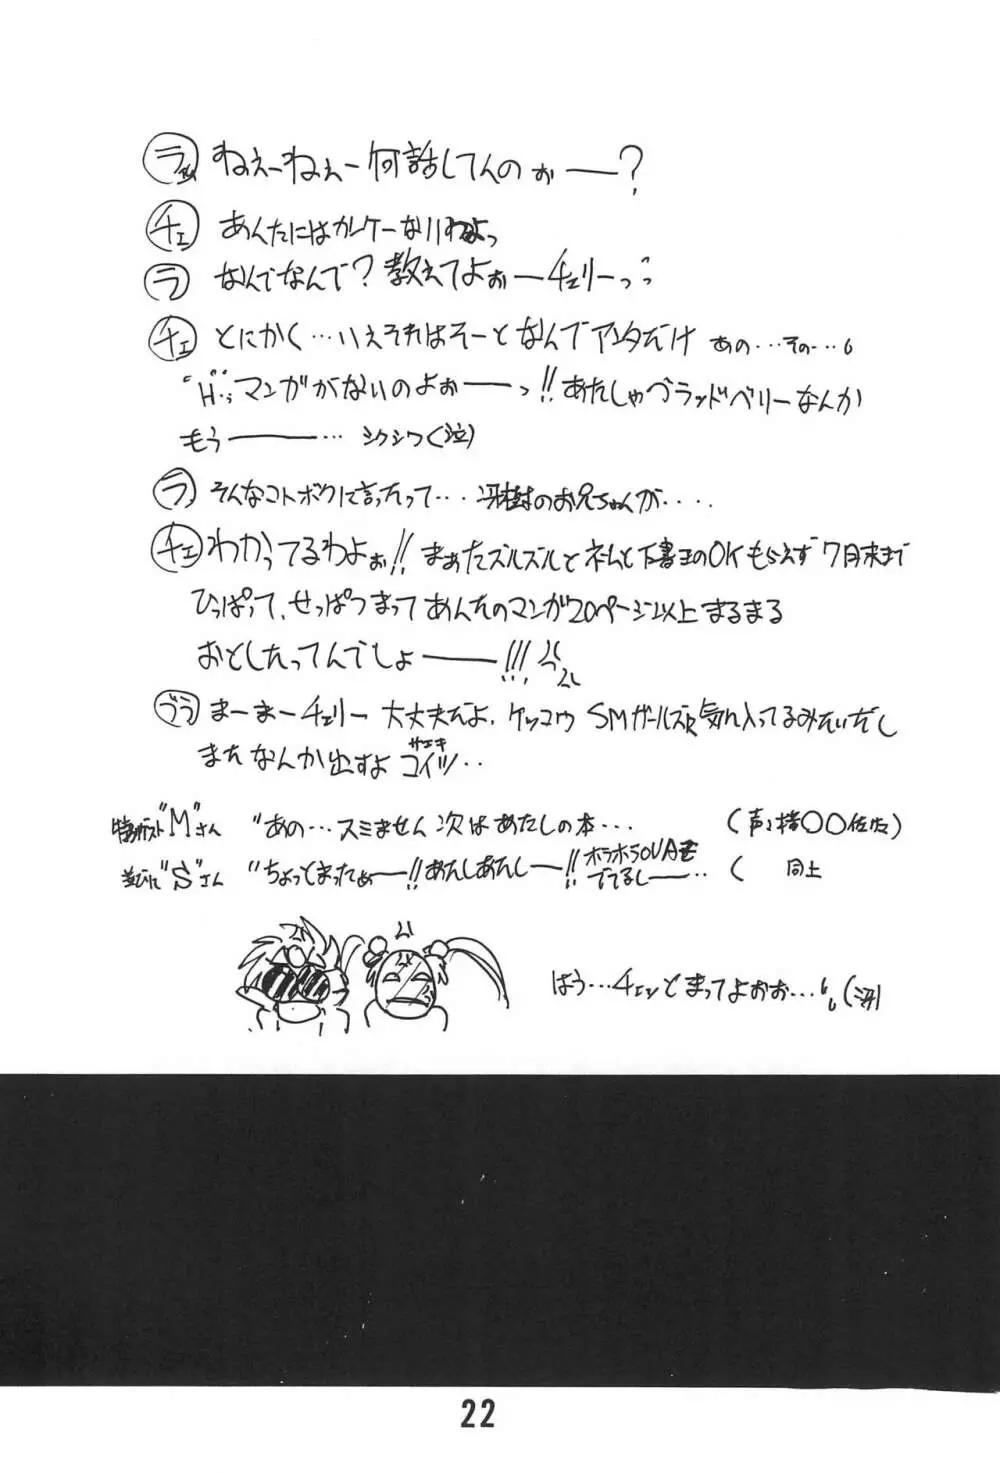 ラ ねえーねえー何話してんのぉ――?
チェ あんたにはカンケーないわよっ
ラ なんでなんで?教えてよぉーチェリーっ
チェ とにかく…いえそれはそーとなんでアンタだけ あの…その…
"H"マンガがないのよぉ――っ!!あたしゃブラッドベリーなんか
もう――… シクシク(泣)
ラ そんなコトボクに言ったって…冴樹のお兄ちゃんが‥‥
チェ わかってるわよぉ!!まぁたズルズルとネームと下書きのOKもらえず7月末まで
ひっぱって、せっぱつまってあんたのマンガ20ページ以上まるまる
おとしたってんでしょ――!!!
ブラ まーまーチェリー 大丈夫だよ、ケッコウSMガールズ気に入ってるみたいだし
またなんか出すよコイツ‥
サエキ
特別ゲスト"M"さん "あの…スミません次はあたしの本… (声
並びに"S"さん "ちょっとまったぁ―!!あたしあたしー!!ホラホラOVAも
でてるし――‥ ( 同上
はう…チョッとまってよぉぉ…(冴)
22